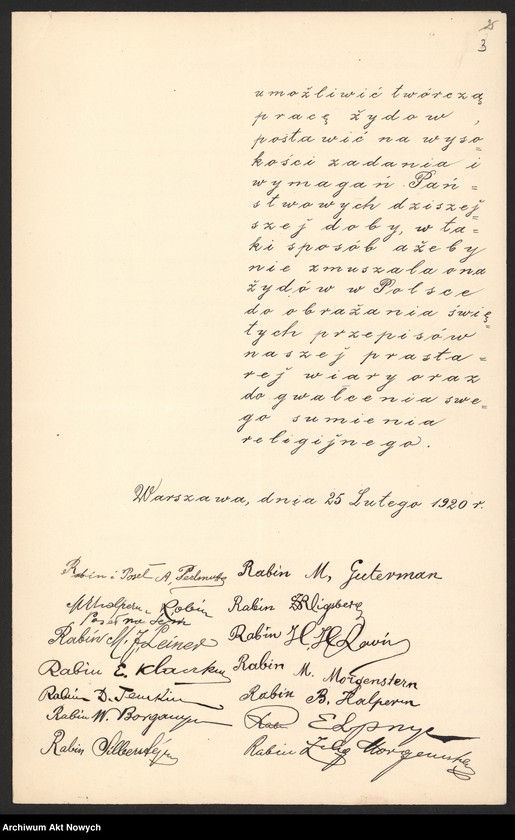 3
umożliwić twórczą
pracę żydow,
postawić na wyso=
kości zadania i
wymagań Pań=
stwowych dziszej=
szej doby, w ta=
ki sposób ażeby
nie zmuszała ona
żydów w Polsce
do obrażania świę=
tych przepisów
naszej prasta=
rej wiary oraz
do gwałcenia swe=
go sumienia
religijnego.
Warszawa, dnia 25 Lutego 1920 r.
Rabin i Poseł A. Perlmutter
Rabin M. Guterman
M. Halpern, Rabin
Poseł na Sejm
Rabin
Rabin M. J. Leiner
Rabin
Rabin E. Klaczkin
Rabin M. Morgenstern
Rabin D.
Rabin B. Halpern
Rabin W.
Rab.
Rabin Silberstejn
Rabin Morgenstern
Archiwum Akt Nowych